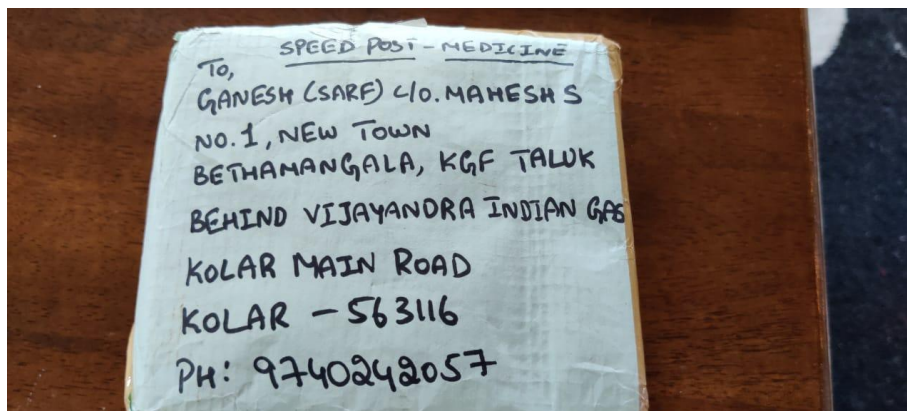 SPEED POST - MEDICINE
TO,
GANESH (SARF) C/O. MAHESH S
NO. 1, NEW TOWN
BETHAMANGALA, KGF TALUK
BEHIND VIJAYANDRA INDIAN GAS
KOLAR MAIN ROAD
KOLAR - 563116
PH: 9740242057